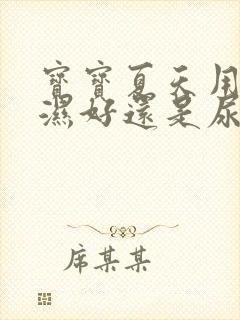 寶寶夏天用
濕好還是尿
席某某